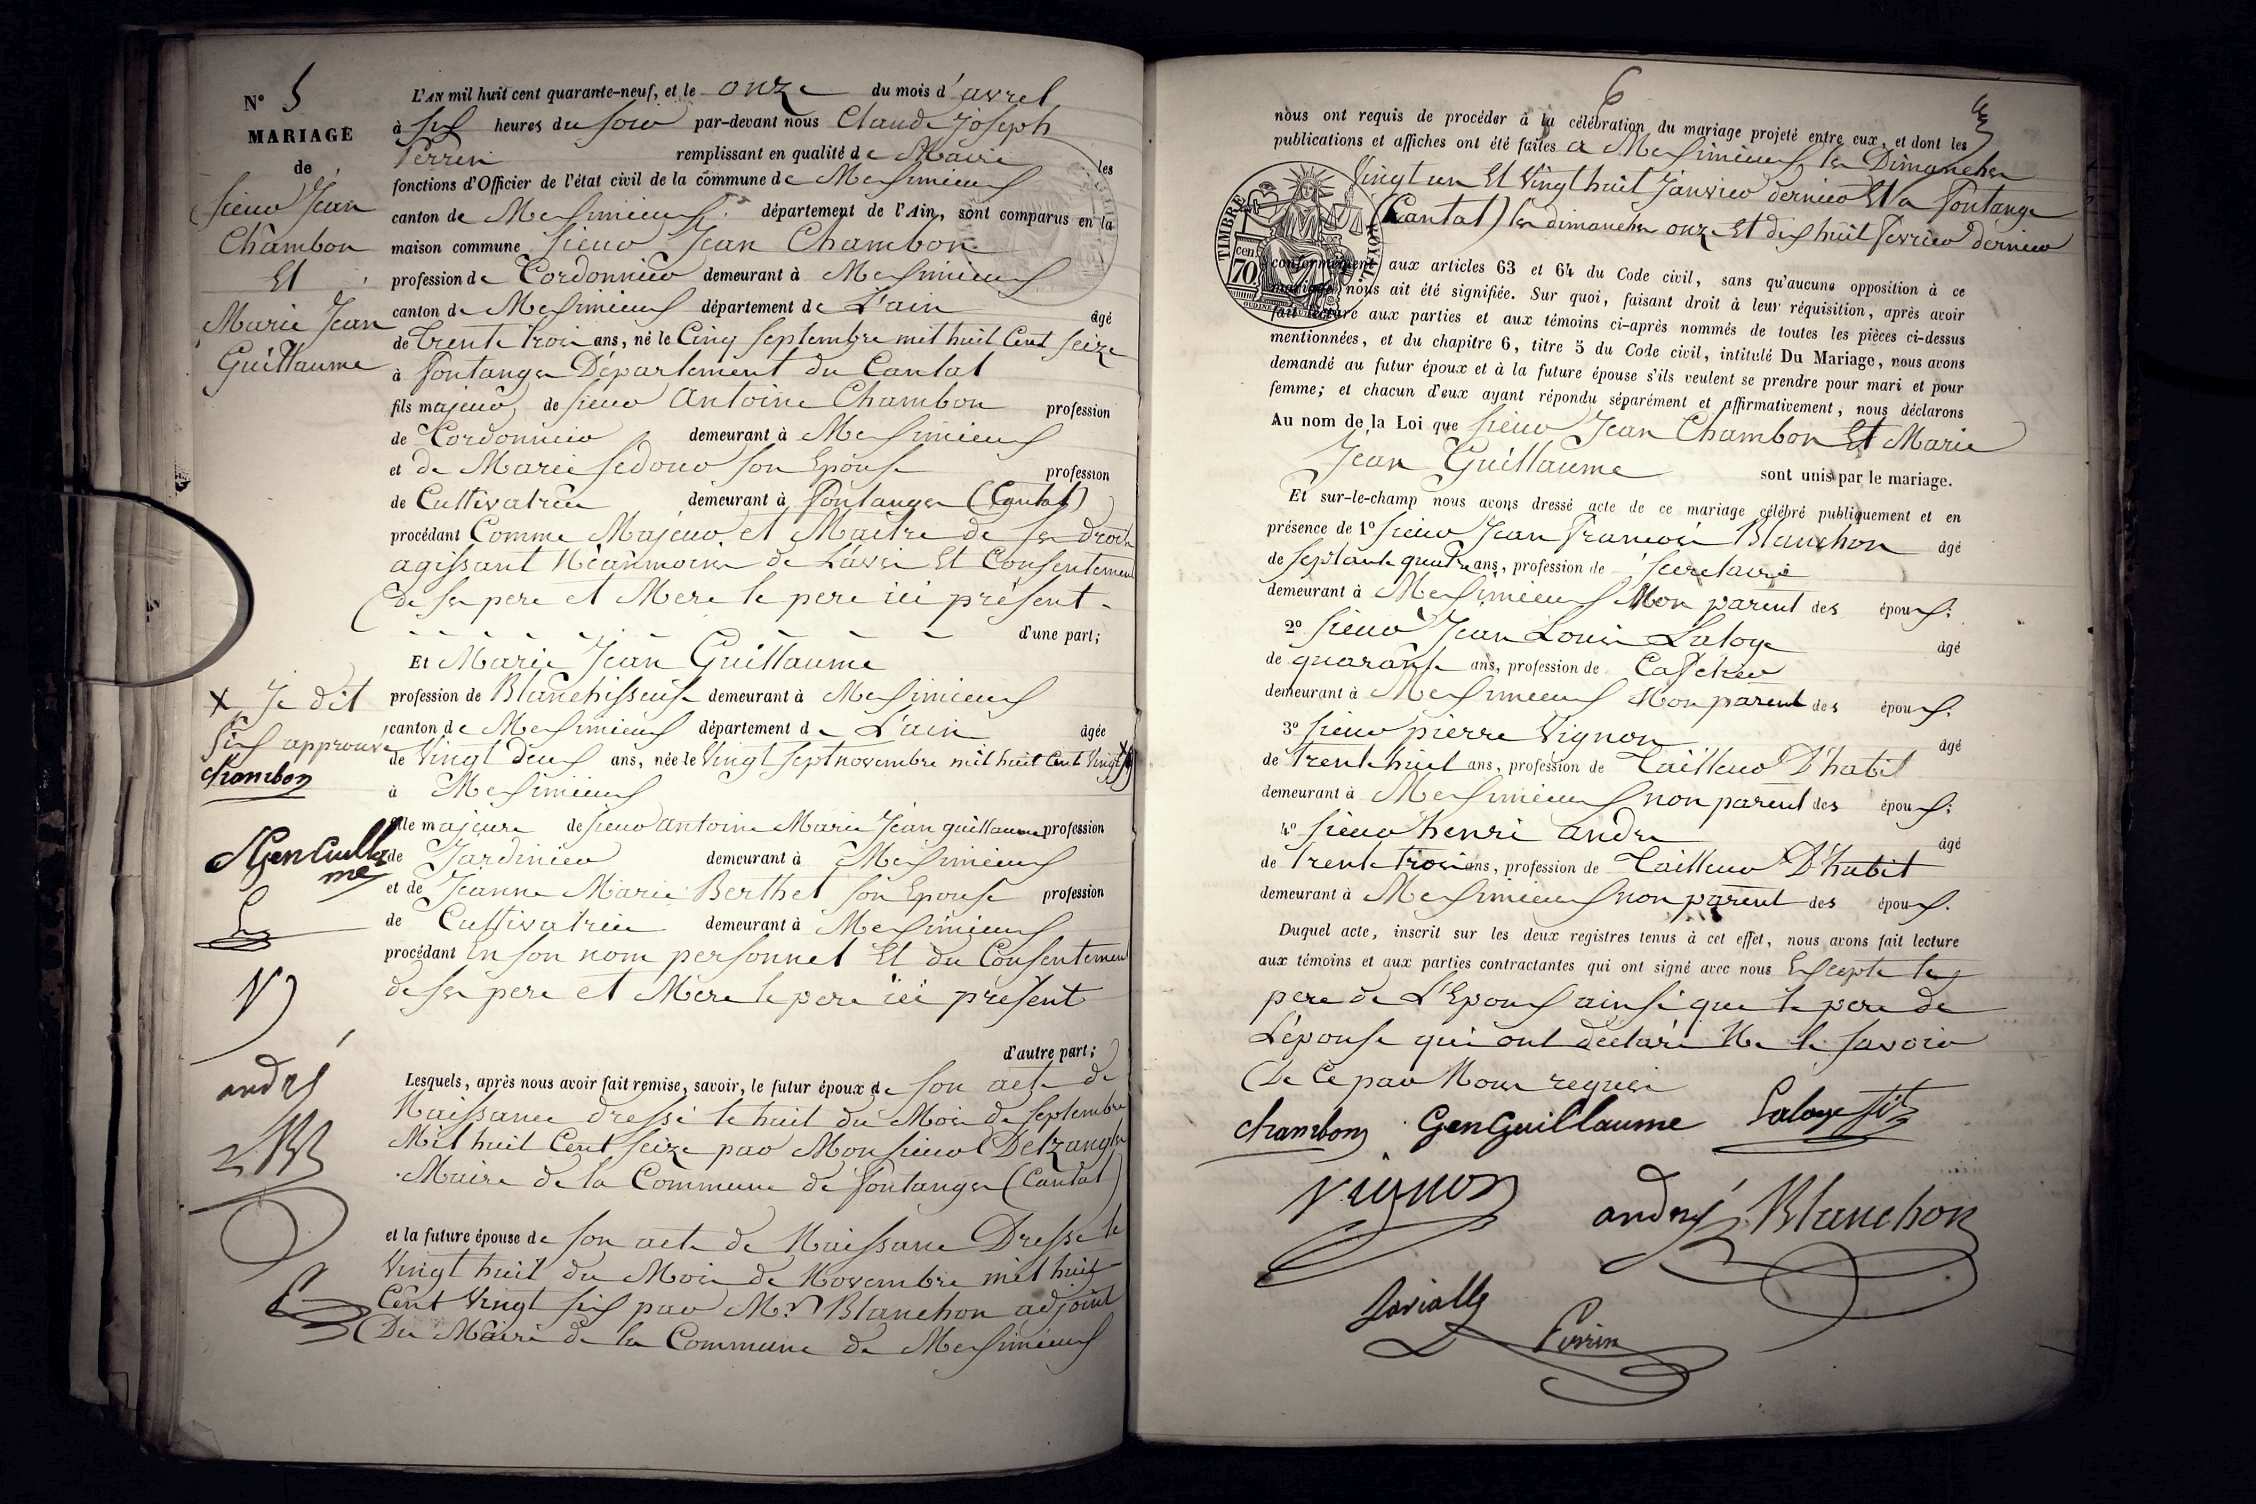 N° 5
MARIAGE
de
sieur Jean
Chambon
Et
Marie Jean
Guillaume
L'AN mil huit cent quarante-neuf, et le onze du mois d'avrel
à six heures du soir par-devant nous Claude Joseph
Perrin remplissant en qualité de Maire les
fonctions d'Officier de l'état civil de la commune de Messimieux
canton de Messimieux département de l'Ain, sont comparus en la
maison commune sieur Jean Chambon
profession de Cordonnier demeurant à Messimieux
canton de Messimieux département de L'ain âgé
de trente trois ans, né le Cinq septembre mil huit Cent seize
à fontanges Département du Cantal
fils majeur de sieur Antoine Chambon profession
de Cordonnier demeurant à Messimieux
et de Marie sedour son Epouse profession
de Cultivatrice demeurant à fontanges (Cantal)
procédant Comme Majeur et Maitre de ses droits
agissant Néanmoins de L'avis Et Consentement
de ses pere et Mere le pere ici présent
d'une part;
Et Marie Jean Guillaume
profession de Blanchisseuse demeurant à Messimieux
canton de Messimieux département de L'ain âgée
de Vingt deux ans, née le Vingt sept novembre mil huit Cent Vingt X
à Messimieux
fille majeure de sieur antoine Marie Jean guillaume profession
de Jardinier demeurant à Messimieux
et de Jeanne Marie Berthet son Epouse profession
de Cultivatrice demeurant à Messimieux
procédant En son nom personnel Et du Consentement
de ses pere et Mere le pere ici présent
d'autre part;
Lesquels, après nous avoir fait remise, savoir, le futur époux de son acte de
Naissance dressé le huit du Mois de septembre
Mil huit Cent seize par Monsieur Delzangle
Maire de la Commune de fontanges (Cantal)
et la future épouse de son acte de Naissance Dressé le
Vingt huit du Mois de Novembre mil huit
Cent Vingt six par Mr Blanchon adjoint
Du Maire de la Commune de Messimieux
X Je dit
six approuvé
chambon
JGenGuilla
me
L
V
andré
B
6
nous ont requis de procéder à la célébration du mariage projeté entre eux, et dont les
publications et affiches ont été faites a Messimieux les Dimanches
Vingt un Et Vingt huit Janvier dernier Et a fontange
(Cantal) les dimanches onze Et dix huit fevrier dernier
TIMBRE ROYAL
70 cen.
conformément aux articles 63 et 64 du Code civil, sans qu'aucune opposition à ce
mariage nous ait été signifiée. Sur quoi, faisant droit à leur réquisition, après avoir
fait lecture aux parties et aux témoins ci-après nommés de toutes les pièces ci-dessus
mentionnées, et du chapitre 6, titre 5 du Code civil, intitulé Du Mariage, nous avons
demandé au futur époux et à la future épouse s'ils veulent se prendre pour mari et pour
femme; et chacun d'eux ayant répondu séparément et affirmativement, nous déclarons
Au nom de la Loi que sieur Jean Chambon Et Marie
Jean Guillaume sont unis par le mariage.
Et sur-le-champ nous avons dressé acte de ce mariage célébré publiquement et en
présence de 1° sieur Jean François Blanchon âgé
de septante quatre ans, profession de secretaire
demeurant à Messimieux Non parent des époux.
2° sieur Jean Louis Laloge âgé
de quarante ans, profession de Caffetier
demeurant à Messimieux Non parent des époux.
3° sieur pierre Vignon âgé
de trente huit ans, profession de Tailleur D'habit
demeurant à Messimieux non parent des époux.
4° sieur henri andre âgé
de trente trois ans, profession de Tailleur D'habit
demeurant à Messimieux non parent des époux.
Duquel acte, inscrit sur les deux registres tenus à cet effet, nous avons fait lecture
aux témoins et aux parties contractantes qui ont signé avec nous Excepte le
pere de L'Epoux ainsi que le pere de
L'épouse qui ont déclaré Ne le savoir
De Ce par Nous requis
chambon GenGuillaume Laloge fils
Vignon andré Blanchon
Perrin